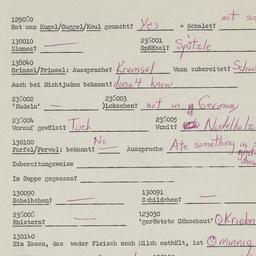 129060 not so
Hat man Kugel/Guggel/Koul gemacht? Yes = Schalet?
130010 236001
Zimmes? — Spätzel? Spätzle
138040
Grimsel/Primsel: Aussprache? Kremsel Wann zubereitet? Schw
Auch bei Nichtjuden bekannt? doesn't know
236002 236003
'Nudeln' — )Lokschen? not in Germany
236004 236005
Worauf gewälzt? Tuch Womit? Nudelholz
130100 No
Farfel/Pervel: bekannt? — Aussprache Ate something in
Zubereitungsweise
In Suppe gegessen?
130090 130091
Scheibchen? — Schildchen? —
236006 123030
Knistern? — 'geröstete Gänsehaut' Kriebn
130140
Ein Essen, das weder Fleisch noch Milch enthält, ist minnig